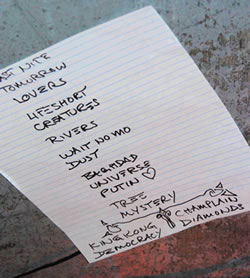 NITE
TOMORROW
LOVERS
LIFESHORT
CREATURES
RIVERS
WAIT NO MO
DUST
BAGHDAD
UNIVERSE
PUTIN ♡
TREE
MYSTERY
CHAMPLAIN
DIAMONDS
KING KONG
DEMOCRACY